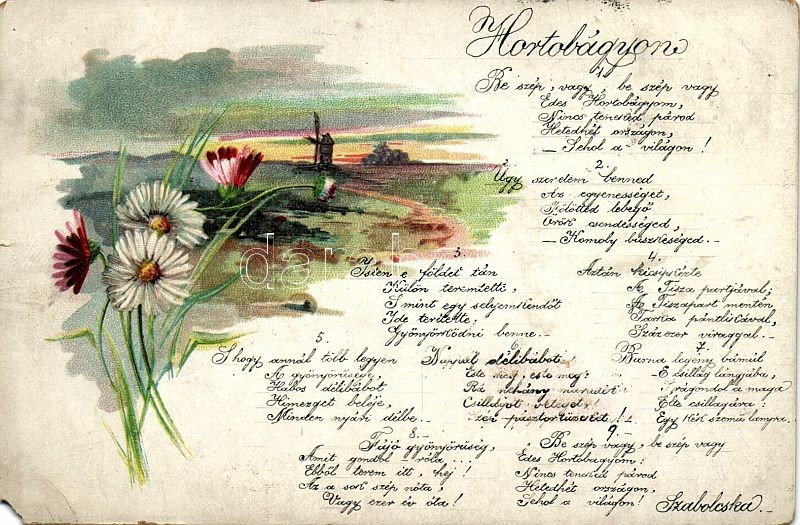 Hortobágyon
1.
Be szép, vagy, be szép vagy
Édes Hortobágyom,
Nincs teneked párod
Hetedhét országon,
– Sehol a világon!
2.
Úgy szeretem benned
Az egyenességet,
Fölötted lebegő
Örök csendességed,
– Komoly büszkeséged. –
3.
Isten e földet tán
Külön teremtette,
S mint egy selyemkendőt
Ide terítette,
Gyönyörködni benne. –
4.
Aztán kicsipkézte
A Tisza partjával;
A Tiszapart mentén
Tarka pántlikával,
Százezer virággal. –
5.
S hogy annál több legyen
Az gyönyörűség,
Habos délibábot
Hímezget beléje,
Minden nyári délbe. –
6.
Nappal délibábot
Este meg, este meg:
Rá néhány maradék
Csillagot
Szép pásztortüzeket! –
7.
Barna legény bámúl
– E csillag lángjába,
Rágondol a maga
Élte csillagára:
Egy kék szemű lányra. –
8. –
Fájó gyönyörűség,
Amit gondol róla,
Ebből terem itt, hej!
Az a sok szép nóta,
Vagy ezer év óta!
9.
Be szép vagy, be szép vagy
Édes Hortobágyom:
Nincs teneked párod
Hetedhét országon,
Sehol a világon!
Szabolcska. –
darabanth